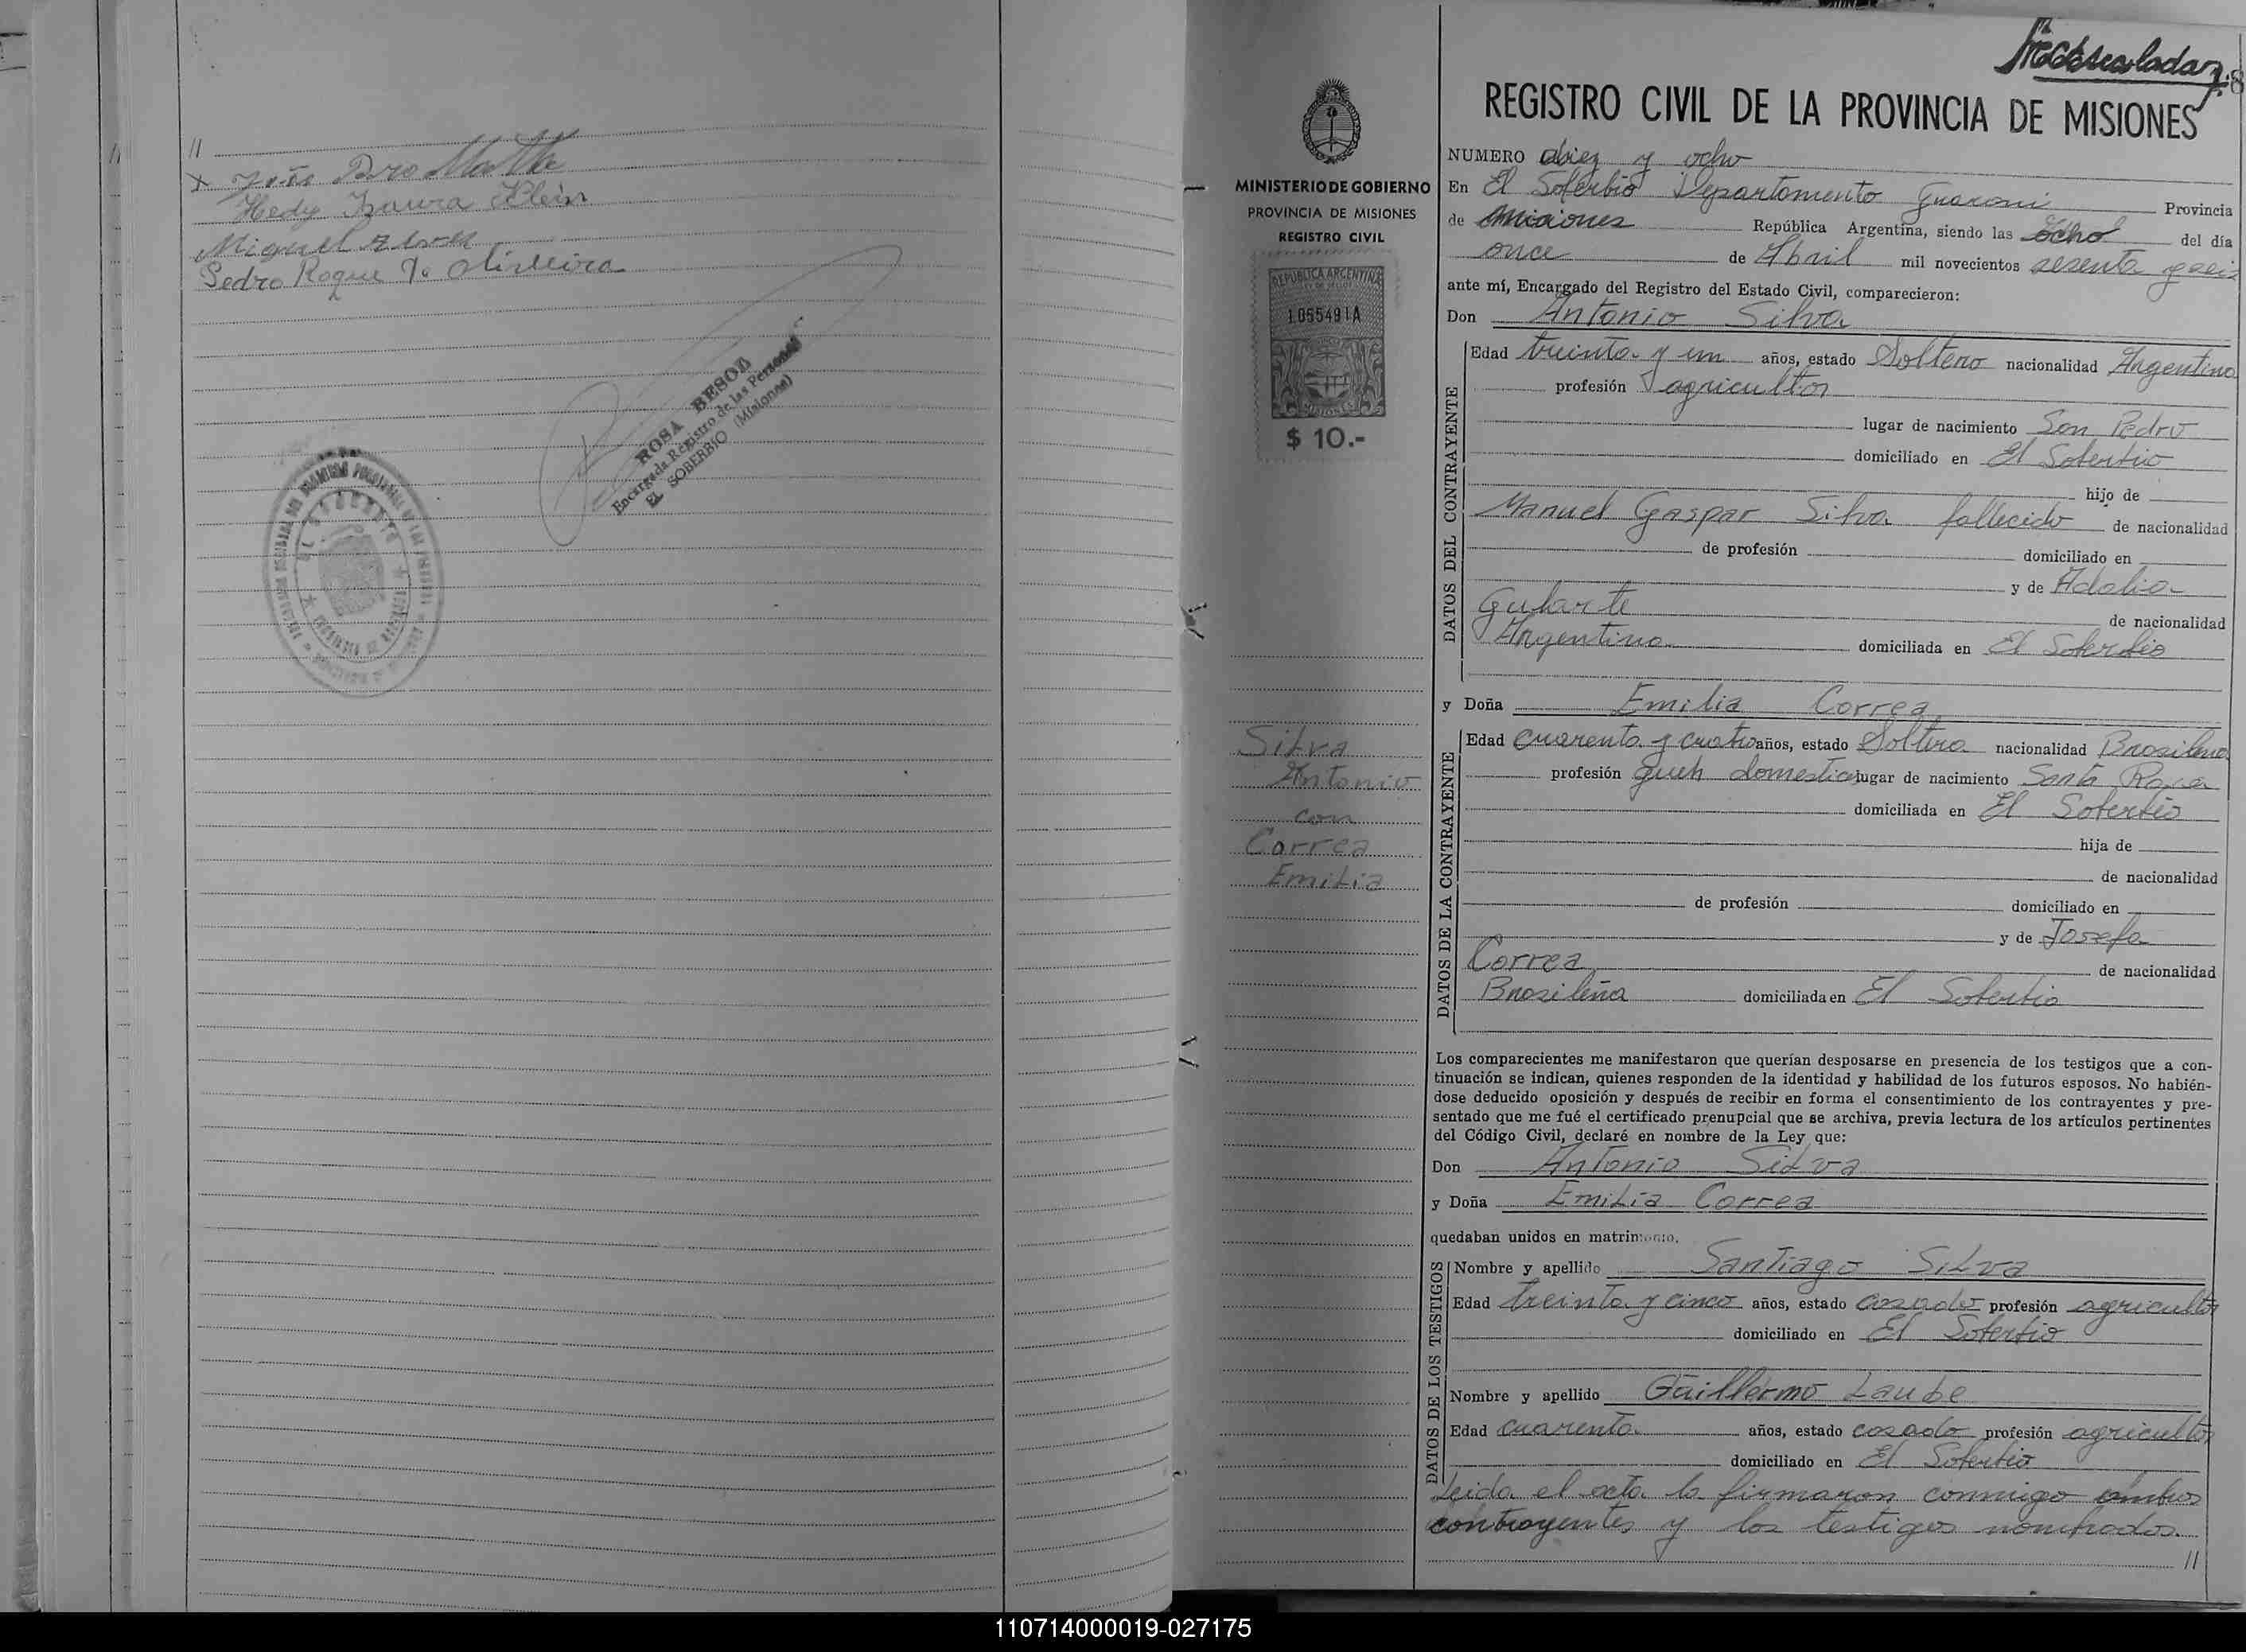 //
Hedy Isaura Klein
Miguel Alves
Pedro Roque de Oliveira
ROSA BESOB
Encargada Registro de las Personas
EL SOBERBIO (Misiones)
REGISTRO CIVIL DE LA PROVINCIA DE MISIONES
MINISTERIO DE GOBIERNO
PROVINCIA DE MISIONES
REGISTRO CIVIL
REPUBLICA ARGENTINA
1055491A
MISIONES
$ 10.-
Silva
Antonio
con
Correa
Emilia
NUMERO diez y ocho
En El Soberbio Departamento Guaraní Provincia
de Misiones República Argentina, siendo las ocho del día
once de Abril mil novecientos sesenta y seis
ante mí, Encargado del Registro del Estado Civil, comparecieron:
Don Antonio Silva
DATOS DEL CONTRAYENTE
Edad treinta y un años, estado Soltero nacionalidad Argentina
profesión agricultor
lugar de nacimiento San Pedro
domiciliado en El Soberbio
hijo de
Manuel Gaspar Silva fallecido de nacionalidad
de profesión domiciliado en
y de Adolia
Gularte de nacionalidad
Argentina domiciliada en El Soberbio
y Doña Emilia Correa
DATOS DE LA CONTRAYENTE
Edad cuarenta y cuatro años, estado Soltera nacionalidad Brasileña
profesión queh domesticos lugar de nacimiento Santa Rosa
domiciliada en El Soberbio
hija de
de nacionalidad
de profesión domiciliado en
y de Josefa
Correa de nacionalidad
Brasileña domiciliada en El Soberbio
Los comparecientes me manifestaron que querían desposarse en presencia de los testigos que a con-
tinuación se indican, quienes responden de la identidad y habilidad de los futuros esposos. No habién-
dose deducido oposición y después de recibir en forma el consentimiento de los contrayentes y pre-
sentado que me fué el certificado prenupcial que se archiva, previa lectura de los artículos pertinentes
del Código Civil, declaré en nombre de la Ley que:
Don Antonio Silva
y Doña Emilia Correa
quedaban unidos en matrimonio.
DATOS DE LOS TESTIGOS
Nombre y apellido Santiago Silva
Edad treinta y cinco años, estado casado profesión agricultor
domiciliado en El Soberbio
Nombre y apellido Guillermo Laube
Edad cuarenta años, estado casado profesión agricultor
domiciliado en El Soberbio
Leida el acta la firmaron conmigo ambos
contrayentes y los testigos nombrados.
//
110714000019-027175